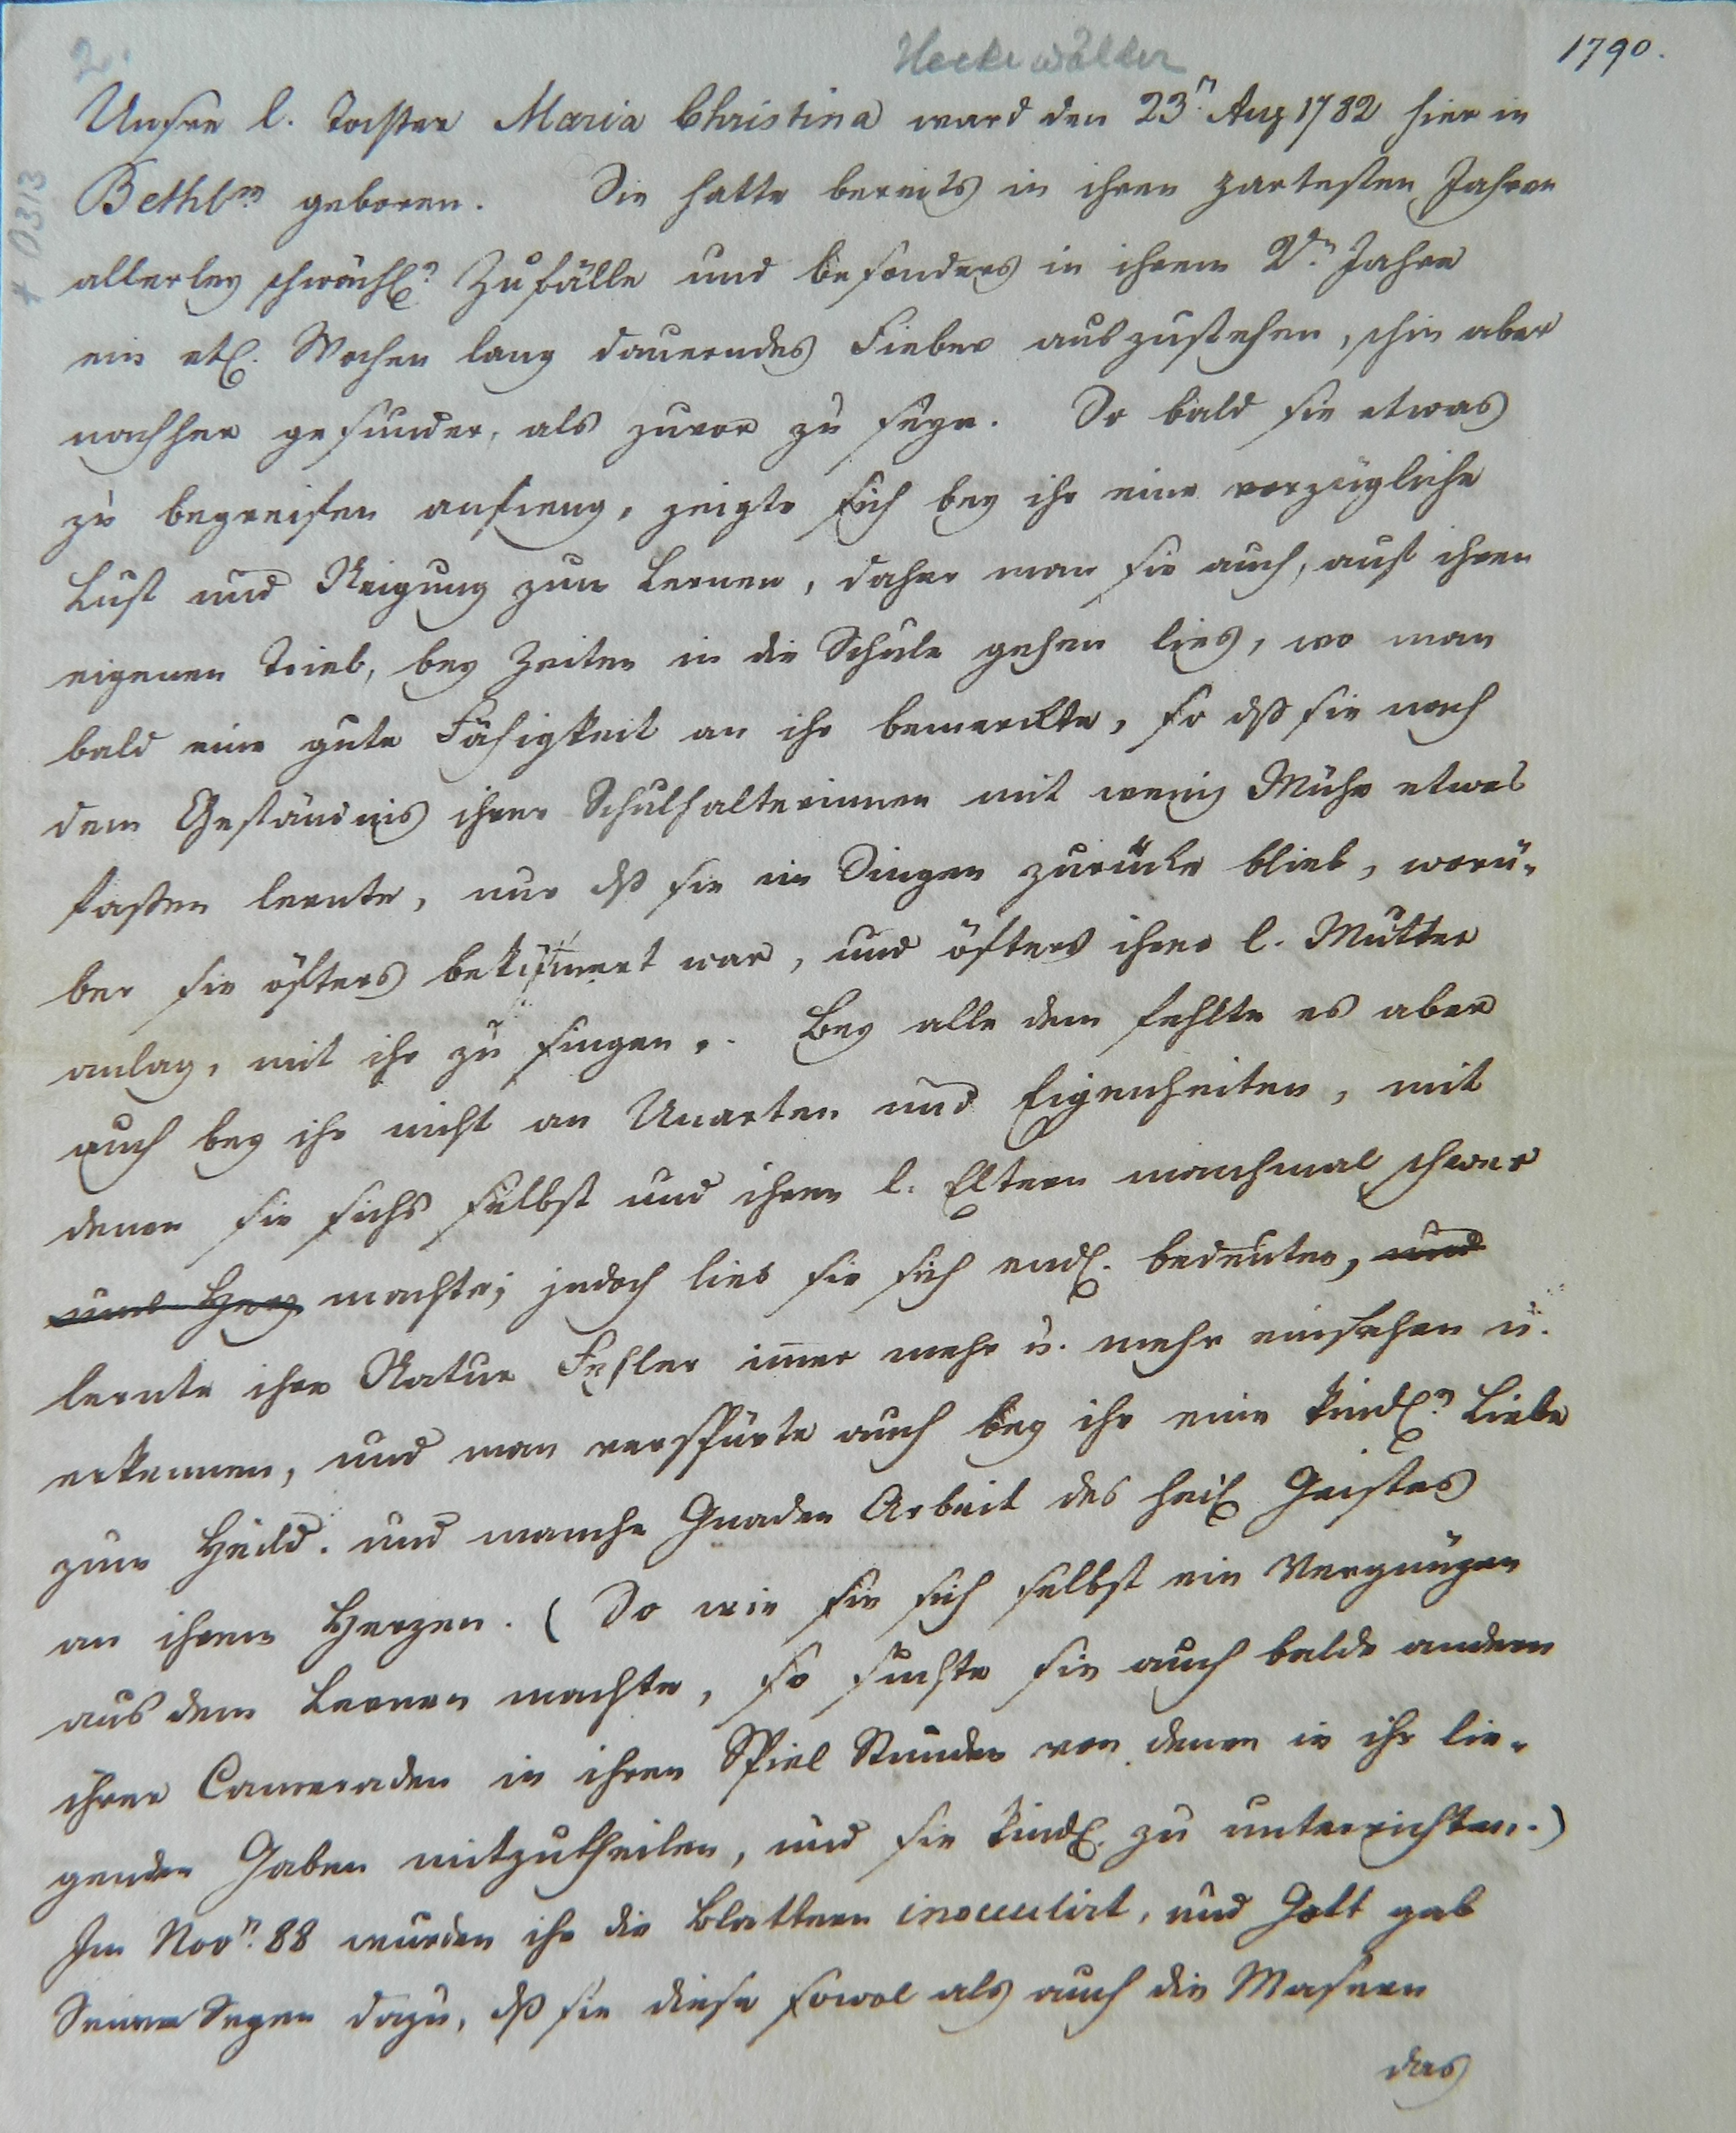 2.
Heckewälder
1790.
+ 0313
Unsre l. Tochter Maria Christina ward den 23n. Aug 1782 hier in
Bethlm geboren. Sie hatte bereits in ihren zartesten Jahren
allerley schwächl. Zufälle und besonders in ihrem 2n. Jahre
ein etl. Wochen lang dauerndes Fieber auszustehen, schien aber
nachher gesunder, als zuvor zu seyn. So bald sie etwas
zu begreifen anfieng, zeigte sich bey ihr eine vorzügliche
Lust und Neigung zum Lernen, daher man sie auch, auf ihren
eigenen Trieb, bey Zeiten in die Schule gehen lies, wo man
bald eine gute Fähigkeit an ihr bemerckte, so dß sie nach
dem Geständnis ihrer Schulhalterinnen mit wenig Mühe etwas
faßen lernte, nur dß sie im Singen zurücke blieb, worü-
ber sie öfters bekümert war, und öfters ihrer l. Mutter
anlag, mit ihr zu singen. Bey alle dem fehlte es aber
auch bey ihr nicht an Unarten und Eigenheiten, mit
denen sie sichs selbst und ihren l. Eltern manchmal schwer
ums Herz machte; jedoch lies sie sich endl. bedeuten, und
lernte ihre Natur Fehler imer mehr u. mehr einsehen u.
erkennen, und man verspürte auch bey ihr eine kindl. Liebe
zum Heild. und manche Gnaden Arbeit des heil Geistes
an ihrem Herzen. (So wie sie sich selbst ein Vergnügen
aus dem Lernen machte, so suchte sie auch balde andern
ihrer Cameraden in ihren Spiel Stunden von denen in ihr lie-
genden Gaben mitzutheilen, und sie kindl. zu unterrichten.)
Im Novr. 88 wurden ihr die Blattern inoculirt, und Gott gab
Seinen Segen dazu, dß sie diese sowol als auch die Masern
das